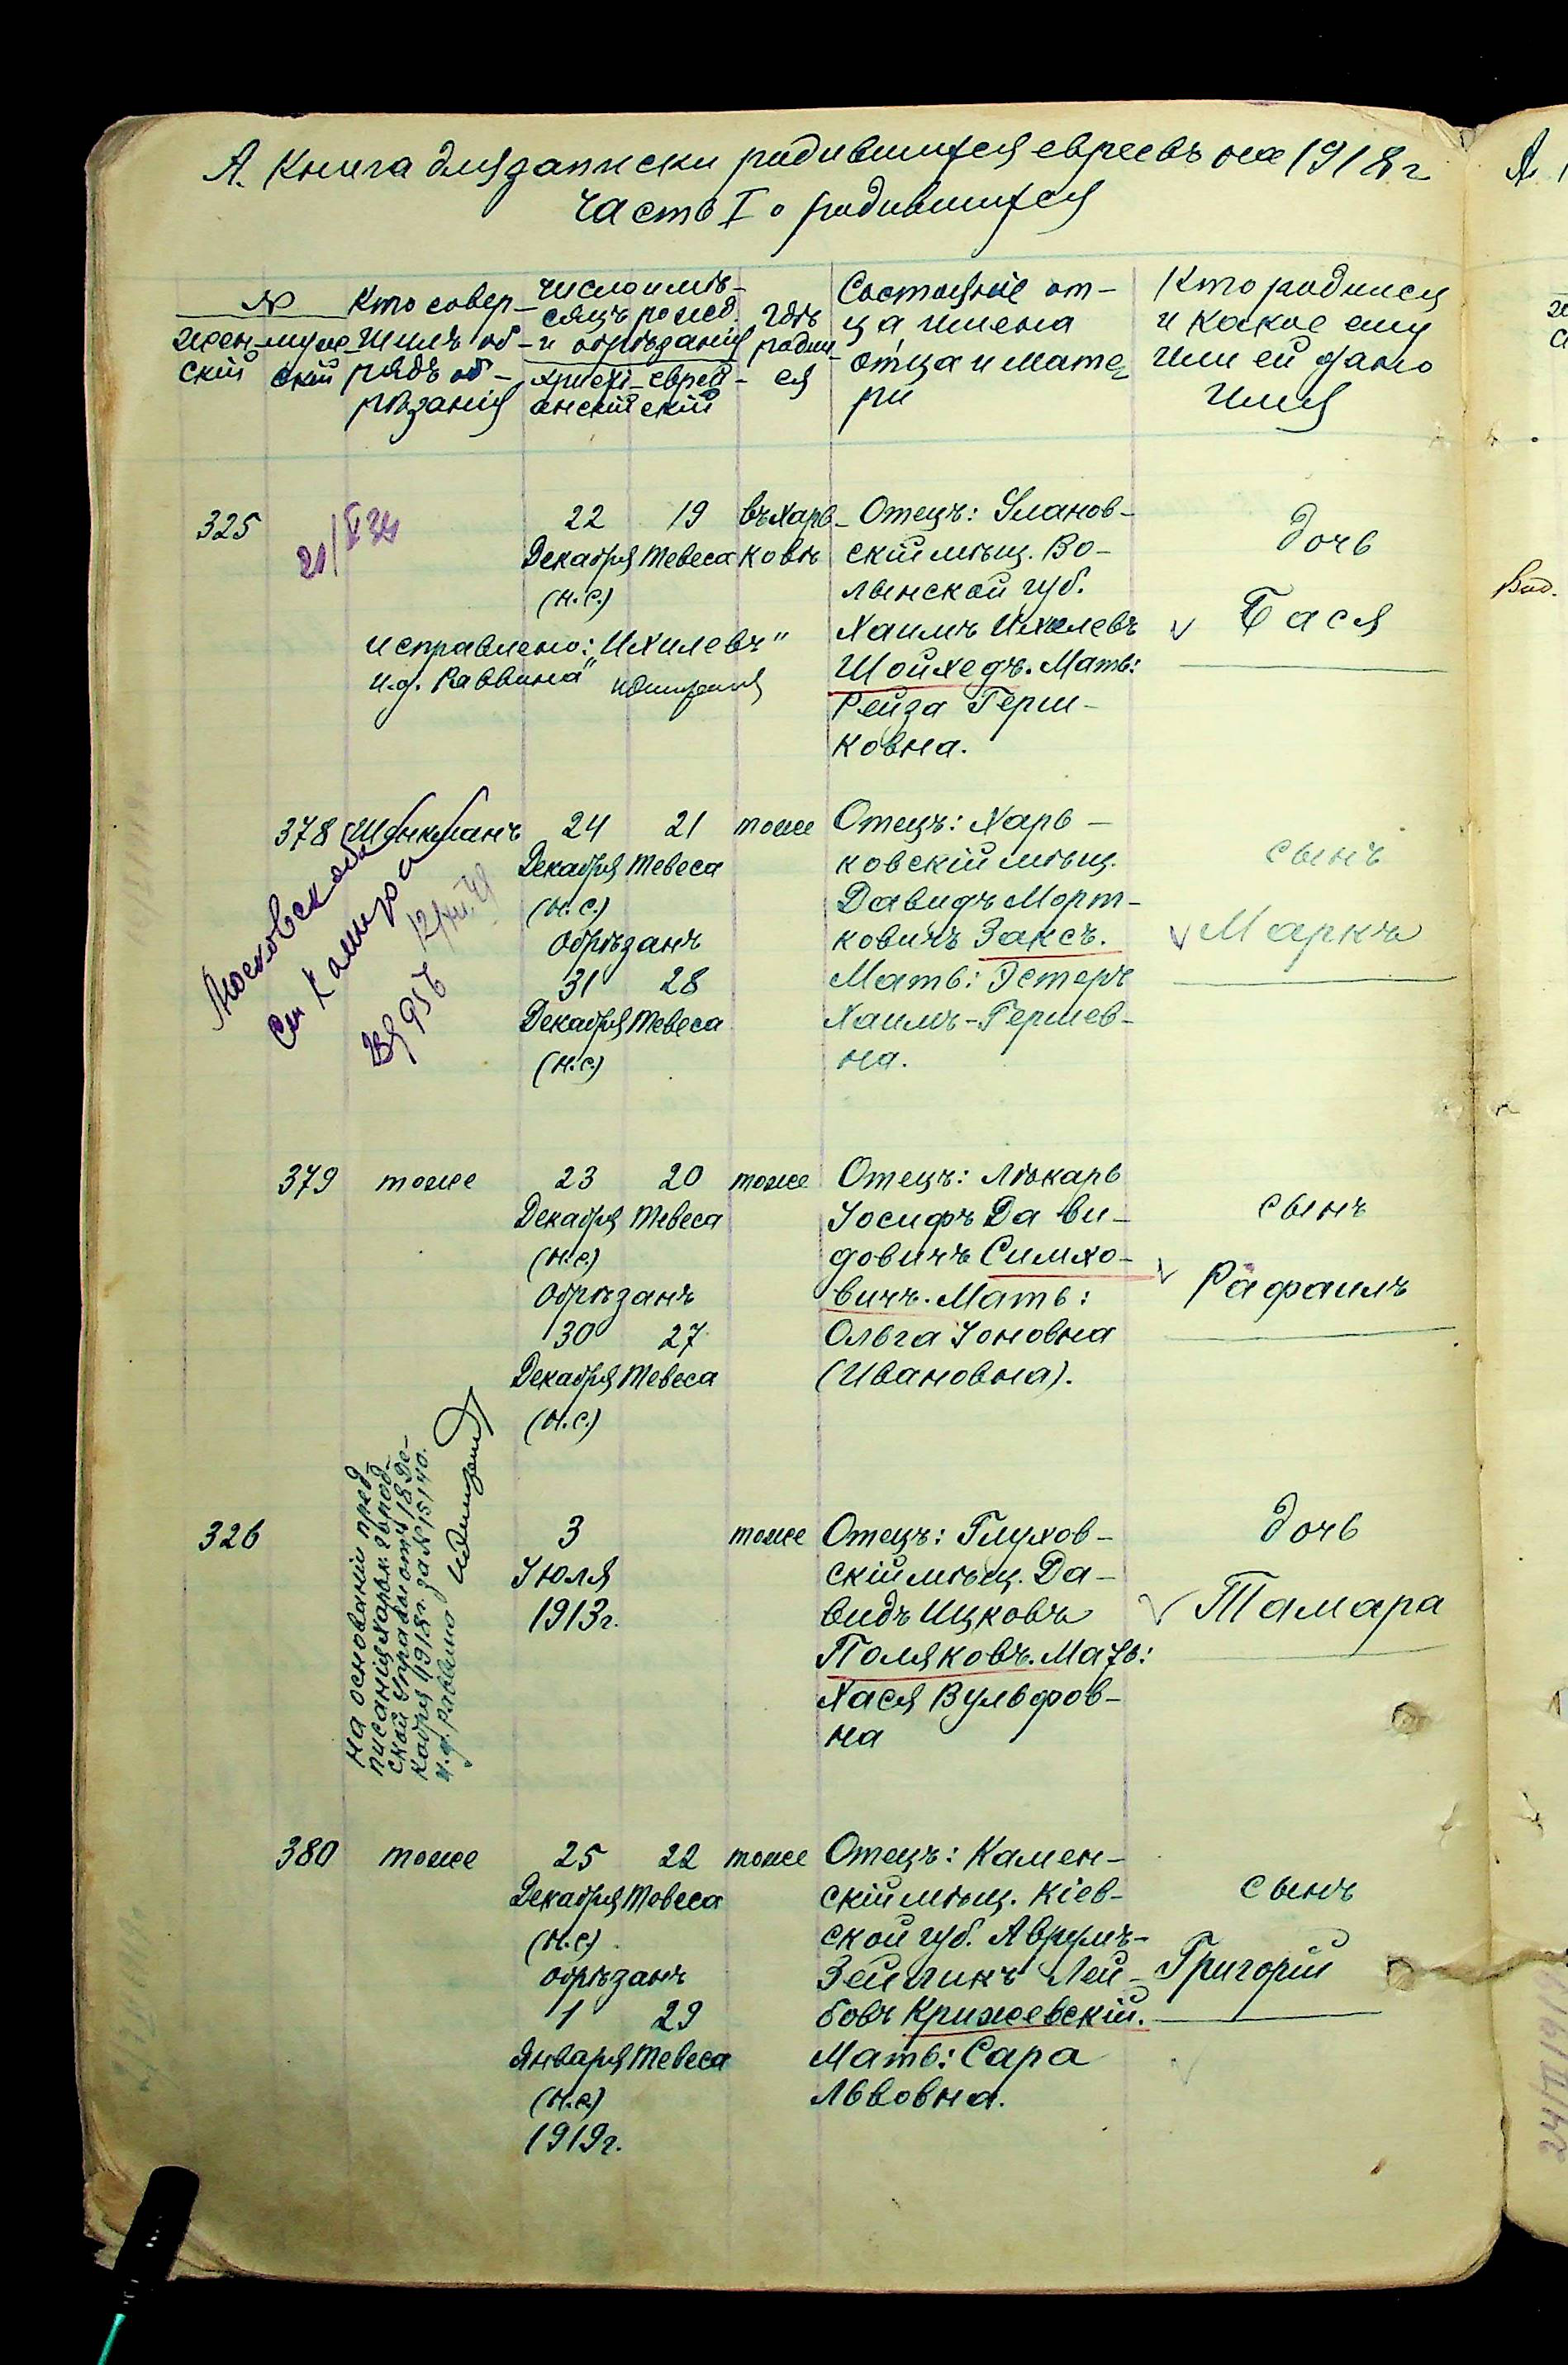 А. Книга для записки родившихся евреевъ на 1918 г
Часть I о родившихся
№
женскій
мужескій
Кто совер-
шилъ об-
рядъ об-
рѣзанія
число и мѣ-
сяцъ рожд.
и обрѣзанія
христі-
анскій
еврей-
скій
гдѣ
родил-
ся
Состояніе от-
ца имена
отца и мате-
ри
Кто родился
и какое ему
или ей дано
имя
325
22
19
въ Харь-
Декабря
Тевеса
ковѣ
(н.с.)
Отецъ: Уланов-
скій мѣщ. Во-
лынской губ.
Хаимъ Ихилевъ
Шойхедъ. Мать:
Рейза Герш-
ковна.
дочь
Бася
исправлено: "Ихилевъ"
и.д. Раввина
378
Шенкманъ
24
21
тоже
Декабря
Тевеса
(н.с.)
Обрѣзанъ
31
28
Декабря
Тевеса
(н.с.)
Отецъ: Харь-
ковскій мѣщ.
Давидъ Морт-
ковичъ Заксъ.
Мать: Эстеръ
Хаимъ-Гершев-
на.
сынъ
Маркъ
Московской
379
тоже
23
20
тоже
Декабря
Тевеса
(н.с.)
Обрѣзанъ
30
27
Декабря
Тевеса
(н.с.)
Отецъ: Лѣкарь
Іосифъ Дави-
довичъ Симхо-
вичъ. Мать:
Ольга Іоновна
(Ивановна).
сынъ
Рафаилъ
326
На основаніи пред-
писанія Харьк. город-
ской Управы отъ 18 Де-
кабря 1918 г. за № 15140.
и.д. Раввина
3
Іюля
1913 г.
тоже
Отецъ: Глухов-
скій мѣщ. Да-
видъ Ицковъ
Поляковъ. Мать:
Хася Вульфов-
на
дочь
Тамара
380
тоже
25
22
тоже
Декабря
Тевеса
(н.с.)
обрѣзанъ
1
29
Января
Тевеса
(н.с.)
1919 г.
Отецъ: Камен-
скій мѣщ. Кіев-
ской губ. Аврумъ-
Зейликъ Лей-
бовъ Крижевскій.
Мать: Сара
Львовна.
сынъ
Григорій